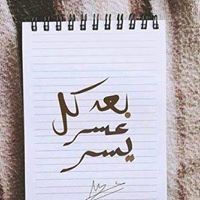 بعد كل
عسر
يسر